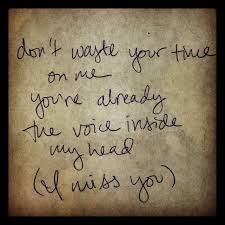 don't waste your time
on me
you're already
the voice inside
my head
(I miss you)